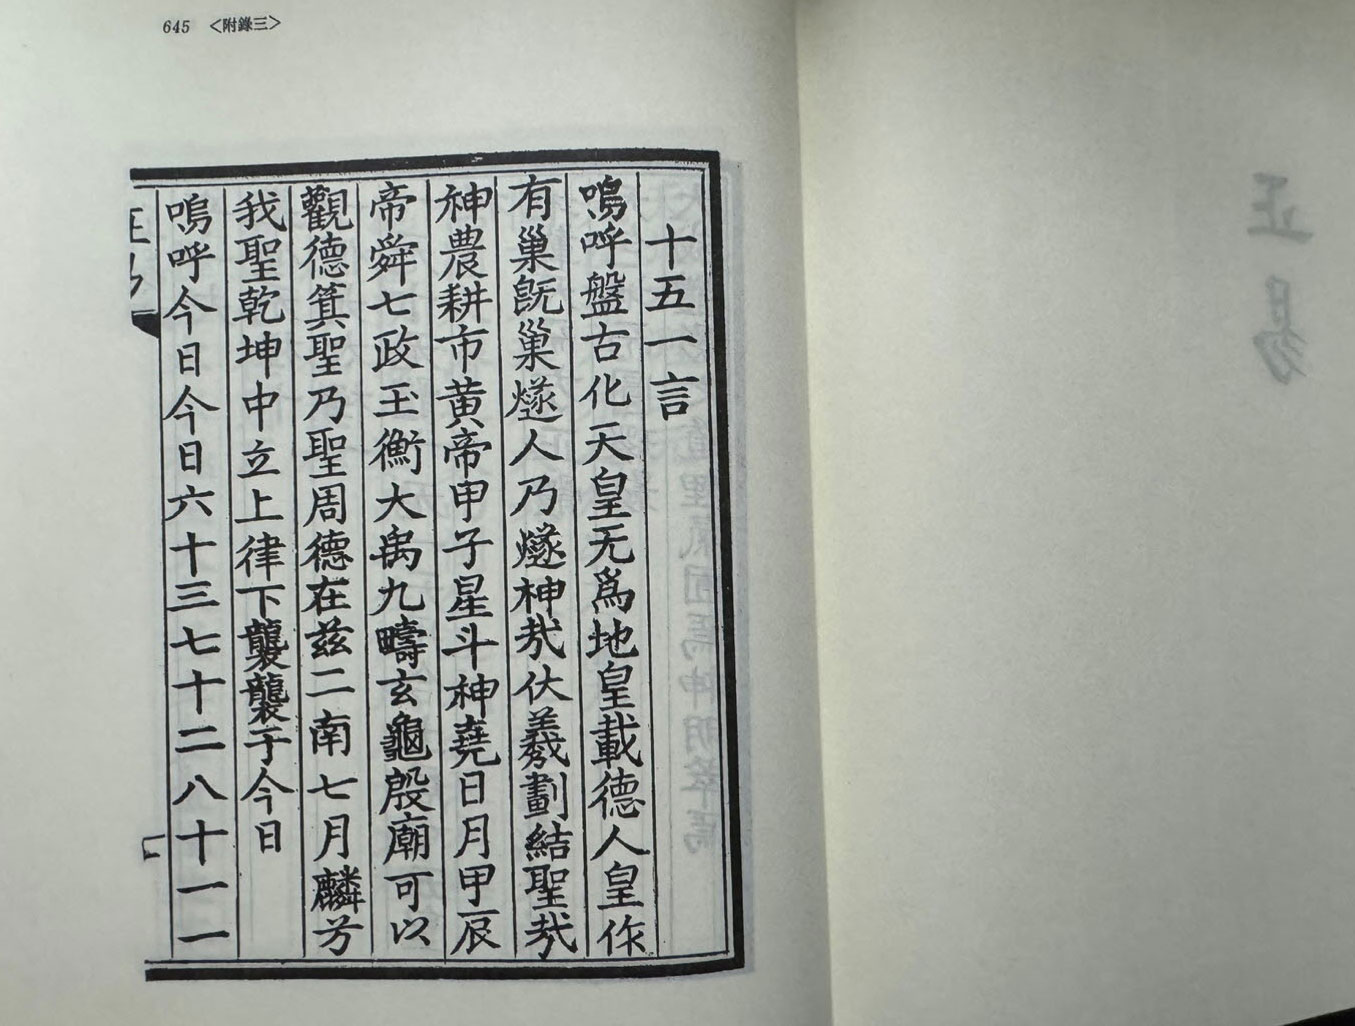 645 〈附錄三〉
十五一言
嗚呼盤古化天皇无爲地皇載德人皇作
有巢旣巢燧人乃燧神哉伏羲劃結聖哉
神農耕市黃帝甲子星斗神堯日月甲辰
帝舜七政玉衡大禹九疇玄龜殷廟可以
觀德箕聖乃聖周德在玆二南七月麟兮
我聖乾坤中立上律下襲襲于今日
嗚呼今日今日六十三七十二八十一一
正易